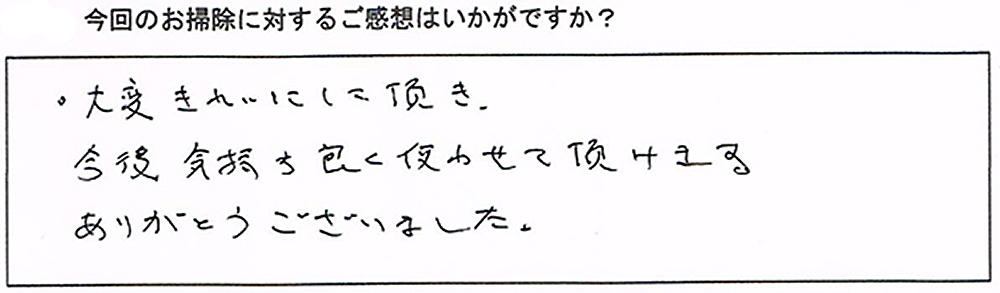 今回のお掃除に対するご感想はいかがですか？
・大変きれいにして頂き、
今後、気持ち良く使わせて頂けます
ありがとうございました。